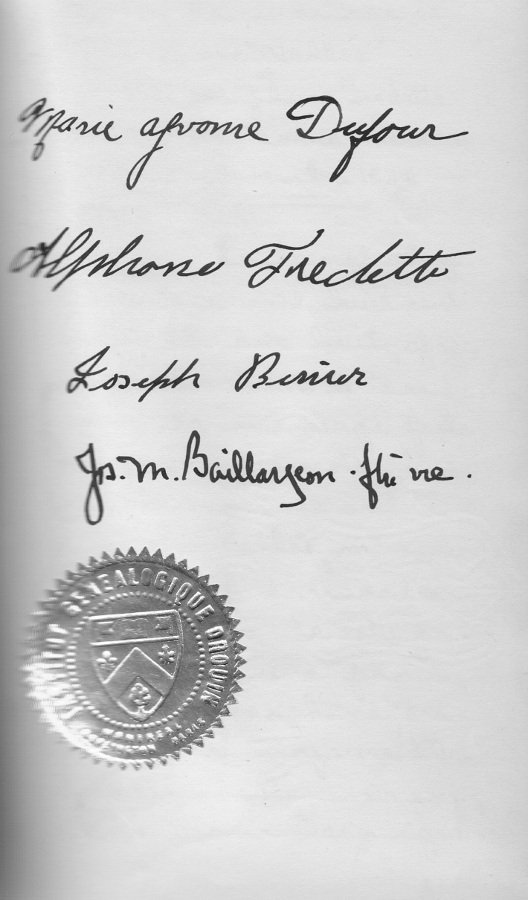 Marie afvome Dufour
Alphonse Fredette
Joseph Bernier
Jos. M. Baillargeon ptre vic.
INSTITUT GENEALOGIQUE DROUIN
MONTREAL
PARIS